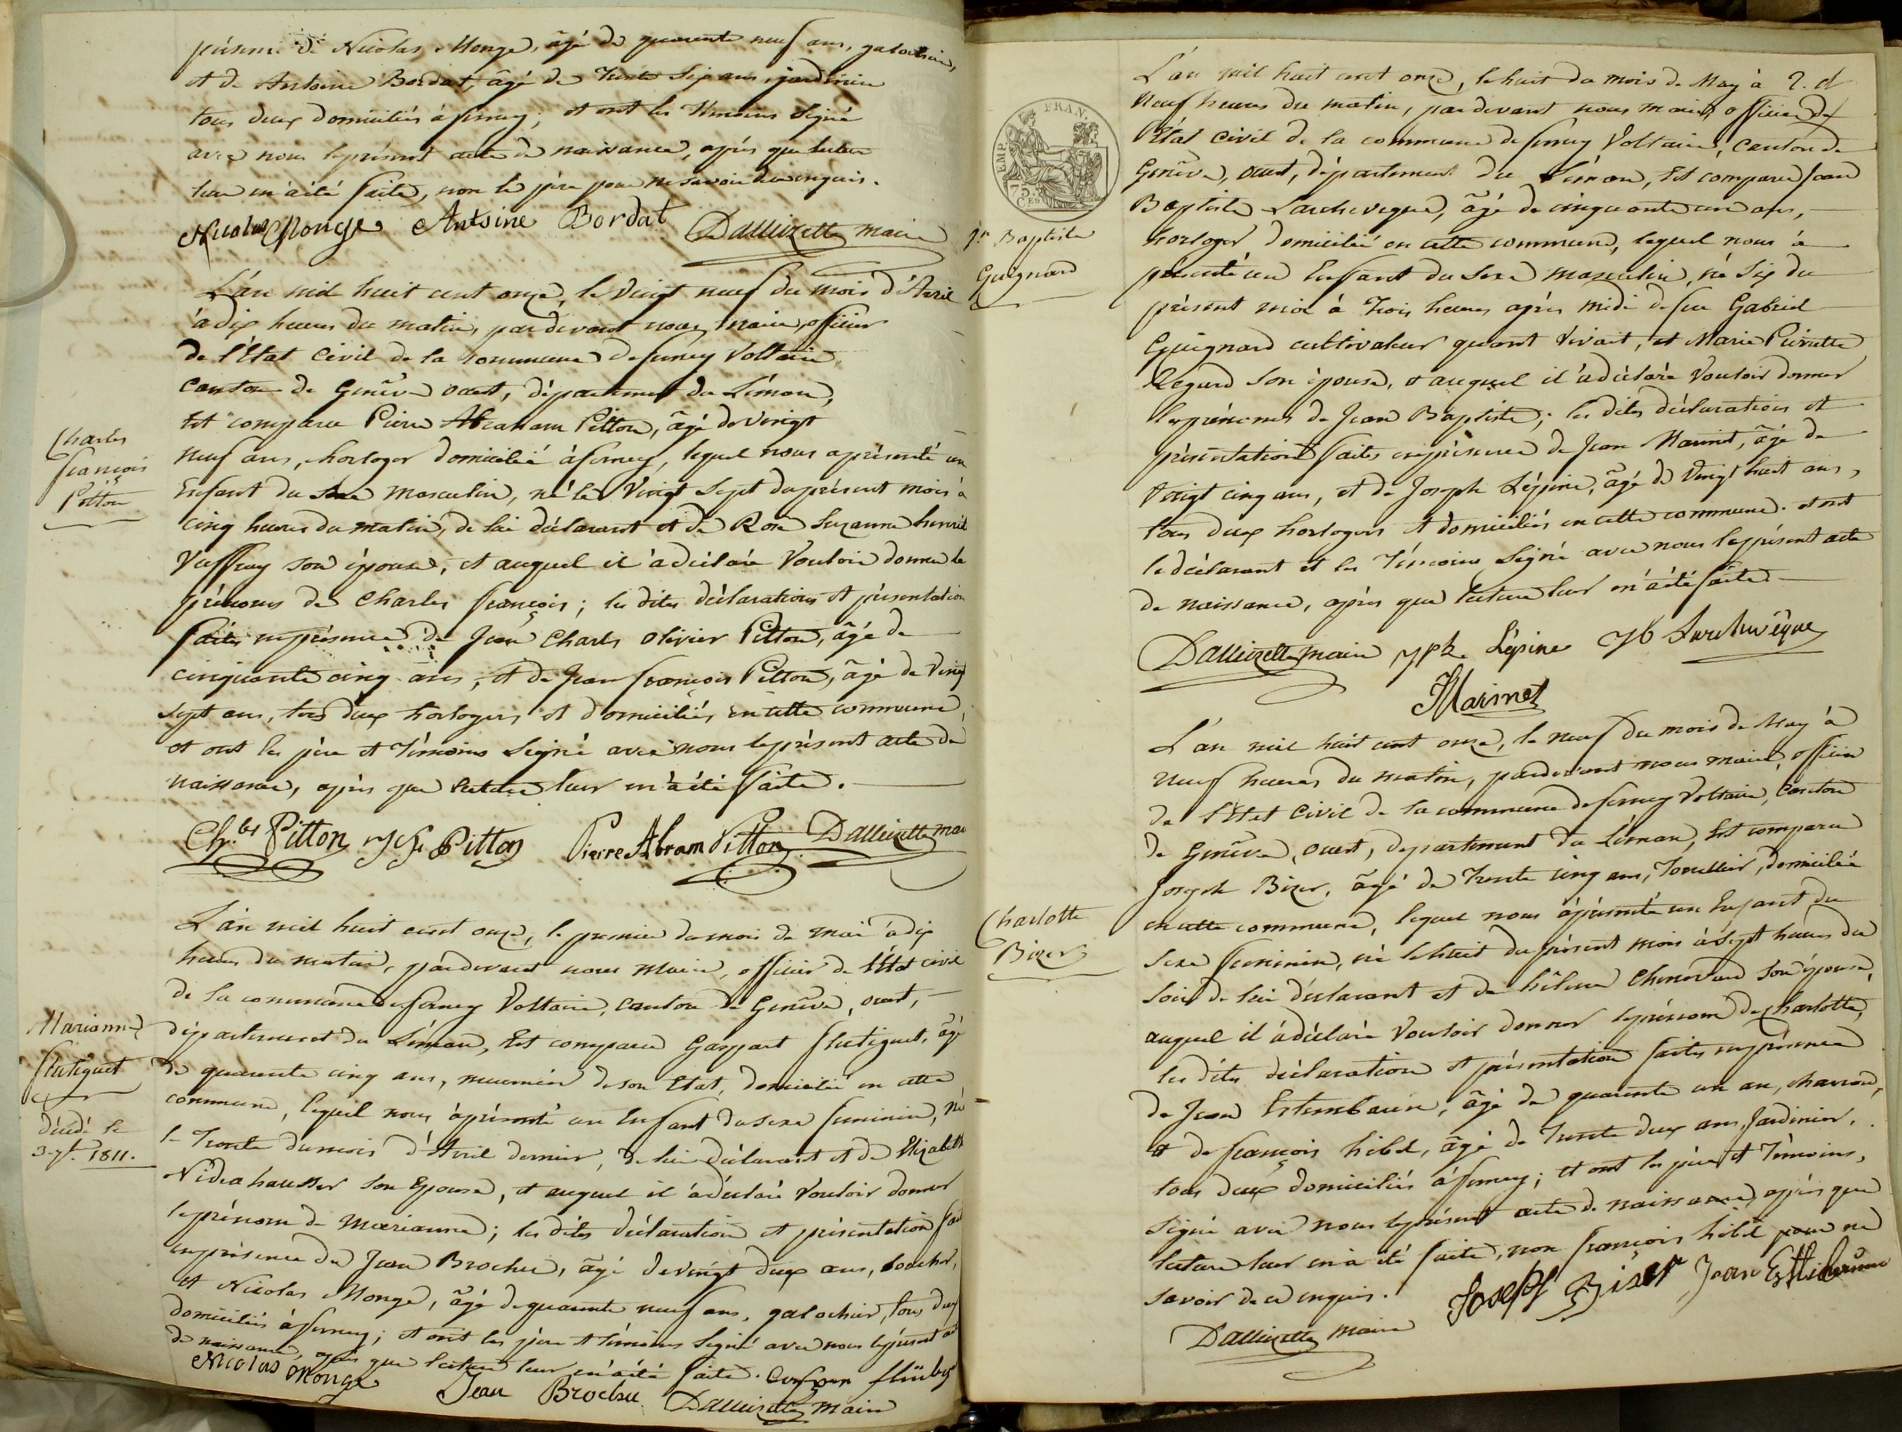 présence de Nicolas Monge, âgé de quarante neuf ans, galochier,
et de Antoine Bordat, âgé de Trente Six ans, jardinier
tous deux domiciliés à ferney; et ont les Témoins Signé
avec nous le présent acte de naissance, après que lecture
leur en a été faite, non le père pour ne savoir de ce enquis.
Nicolas Monge Antoine Bordat Dallizette maire
L'an mil huit cent onze, le vingt neuf du mois d'Avril
à dix heures du matin, par devant nous, maire, officier
de l'État Civil de la Commune de ferney Voltaire
canton de Genève ouest, département du Léman,
Est comparu Pierre Abraham Pitton, âgé de vingt
neuf ans, horloger domicilié à ferney, lequel nous a présenté un
Enfant du Sexe masculin, né le Vingt Sept du présent mois à
cinq heures du matin, de lui déclarant et de Rose Suzanne henriet
son épouse, et auquel il a déclaré Vouloir donner les
prénoms de Charles françois; les dites déclarations et présentation
faites en présence de Jean Charles Olivier Pitton, âgé de
cinquante cinq ans, et de Jean françois Pitton, âgé de Vingt
sept ans, tous deux horlogers et domiciliés en cette commune,
et ont les père et Témoins Signé avec nous le présent acte de
naissance, après que lecture leur en a été faite.
Ch.les Pitton Pitton Pierre Abram Pitton Dallizette mai
Charles
françois
Pitton
L'an mil huit cent onze, le premier du mois de mai à dix
heures du matin, par devant nous Maire, officier de l'État civil
de la commune de ferney Voltaire, canton de Genève, ouest,
département du Léman, Est comparu Gaspart Flutiguet, âgé
de quarante cinq ans, meunier de son Etat, domicilié en cette
commune, lequel nous a présenté un Enfant du sexe feminin, né
le Trente du mois d'Avril dernier, de lui déclarant et de Elizabeth
Nideahausser son Epouse, et auquel il a déclaré Vouloir donner
le prénom de Marianne; les dites déclaration et présentation fait
en présence de Jean Brochu, âgé de vingt deux ans,
et Nicolas Monge, âgé de quarante neuf ans, galochier, tous deux
domiciliés à ferney; et ont les père et témoins Signé avec nous le présent act
de naissance, après que lecture leur en a été faite.
Nicolas Monge Jean Brochu Dallizette maire
Marianne
Flutiguet
décédé le
1811.
EMP. FRAN.
75 C.ES
L'an mil huit cent onze, le huit du mois de May à
neuf heures du matin, par devant nous maire officier de
l'État civil de la commune de ferney Voltaire, canton de
Genève, ouest, département du Léman, Est comparu Jean
Baptiste Larchevêque, âgé de cinquante un ans,
horloger domicilié en cette commune, lequel nous a
présenté un Enfant du Sexe masculin, né Six du
présent mois à trois heures après midi de feu Gabriel
Guignard cultivateur quand vivait, et Marie Pierrette
Regard son épouse, et auquel il a déclaré Vouloir donner
les prénoms de Jean Baptiste; les dites déclarations et
présentation faites en présence de Jean Marinet, âgé de
Vingt cinq ans, et de Joseph Lépine, âgé de Vingt huit ans,
tous deux horlogers et domiciliés en cette commune. et ont
le déclarant et les Témoins Signé avec nous le présent acte
de naissance, après que lecture leur en a été faite.
Dallizette maire Jph. Lépine JB Larchevêque
JMarinet
J.n Baptiste
Guignard
L'an mil huit cent onze, le neuf du mois de May à
neuf heures du matin, par devant nous maire, officier
de l'État civil de la commune de ferney Voltaire, canton
de Genève, ouest, département du Léman, Est comparu
Joseph Bizer, âgé de Trente cinq ans, Tonnelier, domicilié
en cette commune, lequel nous a présenté un Enfant du
Sexe feminin, né le huit du présent mois à Sept heures du
soir de lui déclarant et de hélène Chenevard son épouse,
auquel il a déclaré Vouloir donner le prénom de Charlotte,
les dites déclaration et présentation faites en présence
de Jean Estembaum, âgé de quarante un an, charron,
et de françois hibld, âgé de Trente deux ans, Jardinier,
tous deux domiciliés à ferney; et ont les père et Témoins,
Signé avec nous le présent acte de naissance, après que
lecture leur en a été faite, non françois hibld pour ne
savoir de ce enquis.
Joseph Bizer Jean
Dallizette maire
Charlotte
Bizer